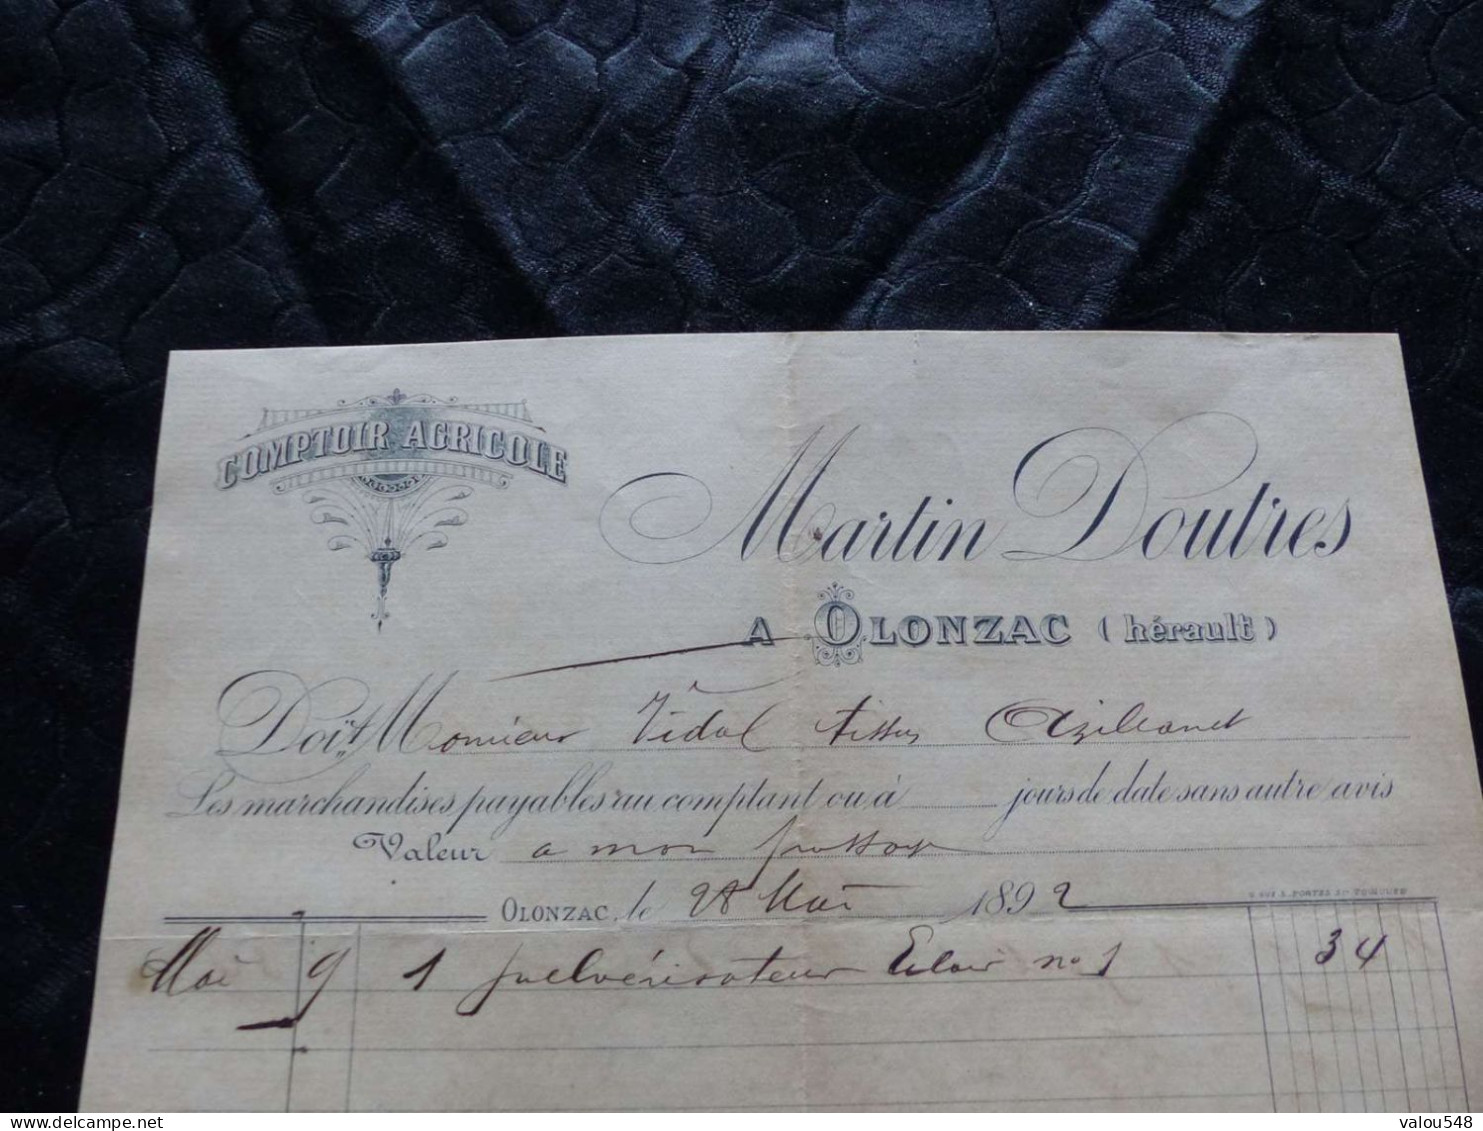 COMPTOIR AGRICOLE
Martin Doutres
A OLONZAC (hérault)
Doit Monsieur Vidal Azillanet
Les marchandises payables au comptant ou à jours de date sans autre avis
Valeur a mon passage
OLONZAC, le 28 Mai 1892
Mai 9 1 pulvérisateur Eclair no 1 34
www.delcampe.net
valou548